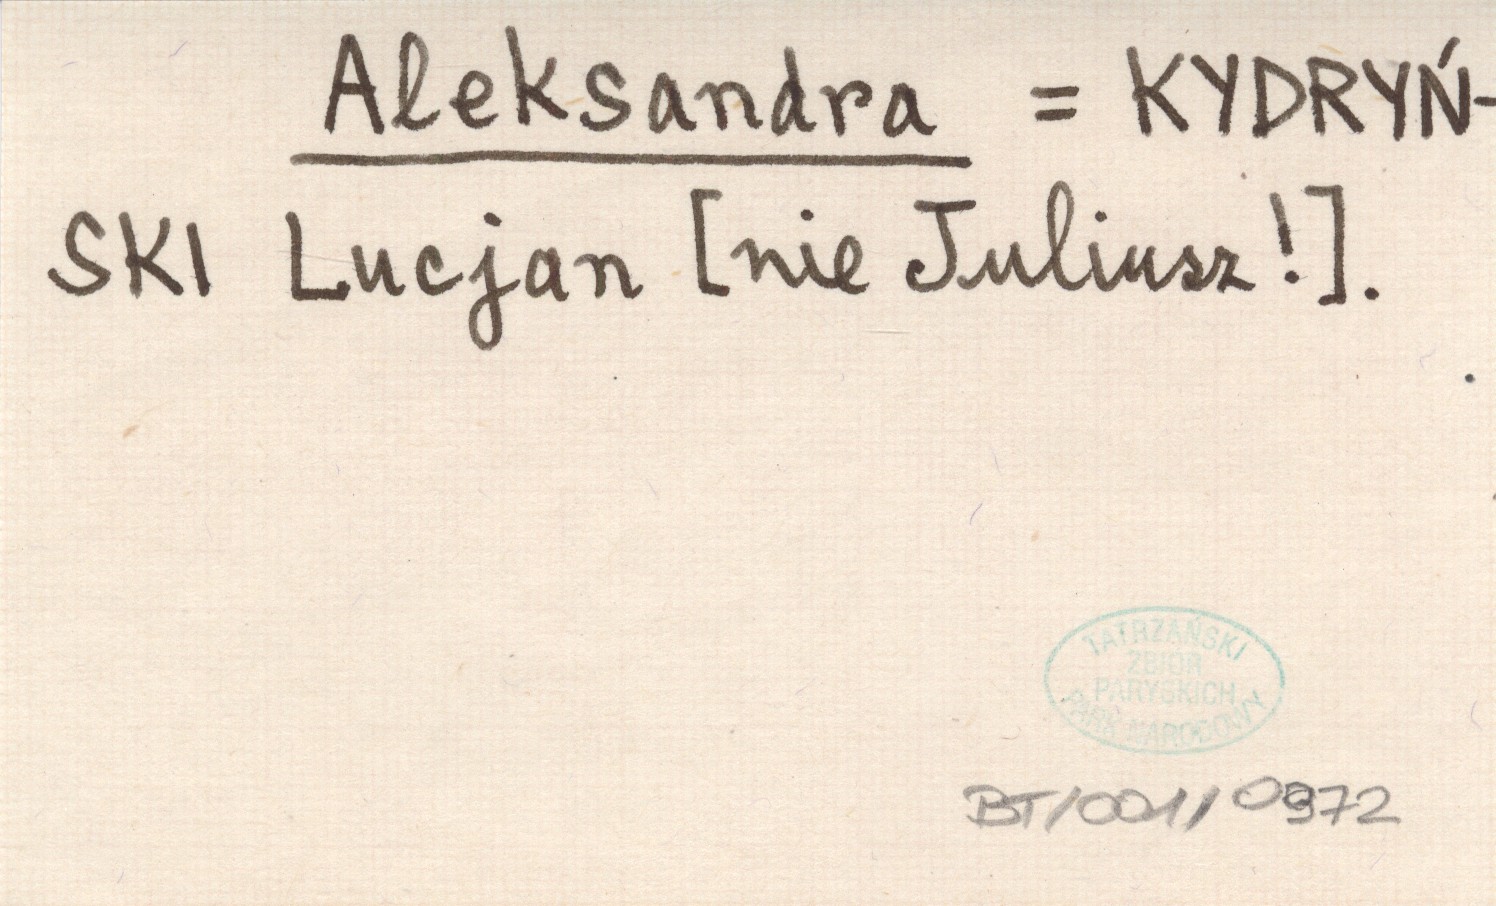 Aleksandra = KYDRYŃ-
SKI Lucjan [nie Juliusz!].
TATRZAŃSKI
ZBIÓR
PARYSKICH
PARK NARODOWY
BT/001/0972